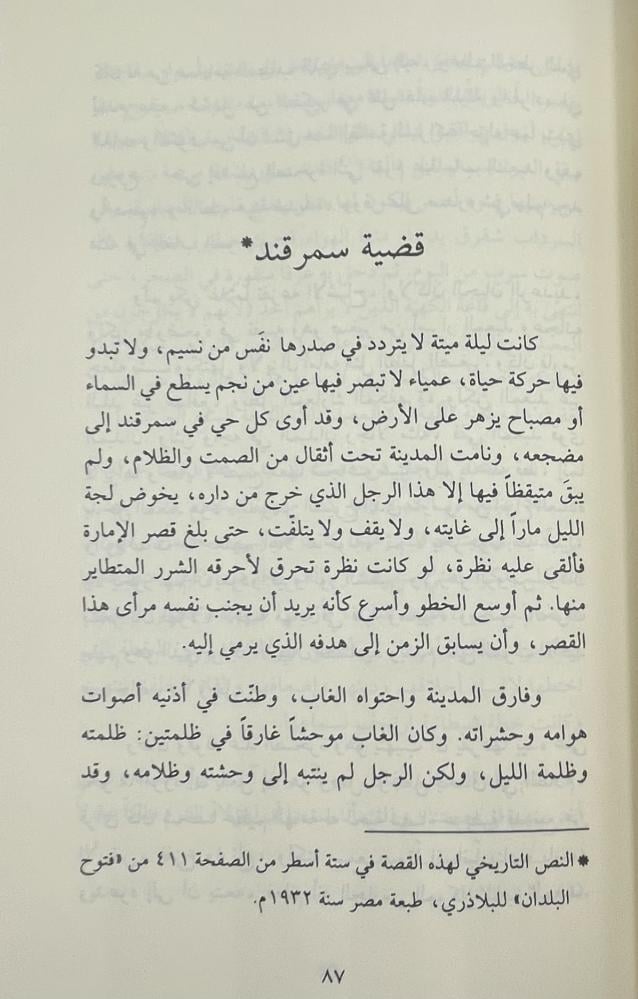 قضية سمرقند*
كانت ليلة ميتة لا يتردد في صدرها نفَس من نسيم، ولا تبدو
فيها حركة حياة، عمياء لا تبصر فيها عين من نجم يسطع في السماء
أو مصباح يزهر على الأرض، وقد أوى كل حي في سمرقند إلى
مضجعه، ونامت المدينة تحت أثقال من الصمت والظلام، ولم
يبقَ متيقظاً فيها إلا هذا الرجل الذي خرج من داره، يخوض لجة
الليل ماراً إلى غايته، ولا يقف ولا يتلفّت، حتى بلغ قصر الإمارة
فألقى عليه نظرة، لو كانت نظرة تحرق لأحرقه الشرر المتطاير
منها. ثم أوسع الخطو وأسرع كأنه يريد أن يجنب نفسه مرأى هذا
القصر، وأن يسابق الزمن إلى هدفه الذي يرمي إليه.
وفارق المدينة واحتواه الغاب، وطنّت في أذنيه أصوات
هوامه وحشراته. وكان الغاب موحشاً غارقاً في ظلمتين: ظلمته
وظلمة الليل، ولكن الرجل لم ينتبه إلى وحشته وظلامه، وقد
* النص التاريخي لهذه القصة في ستة أسطر من الصفحة ٤١١ من «فتوح
البلدان» للبلاذري، طبعة مصر سنة ١٩٣٢م.
٨٧